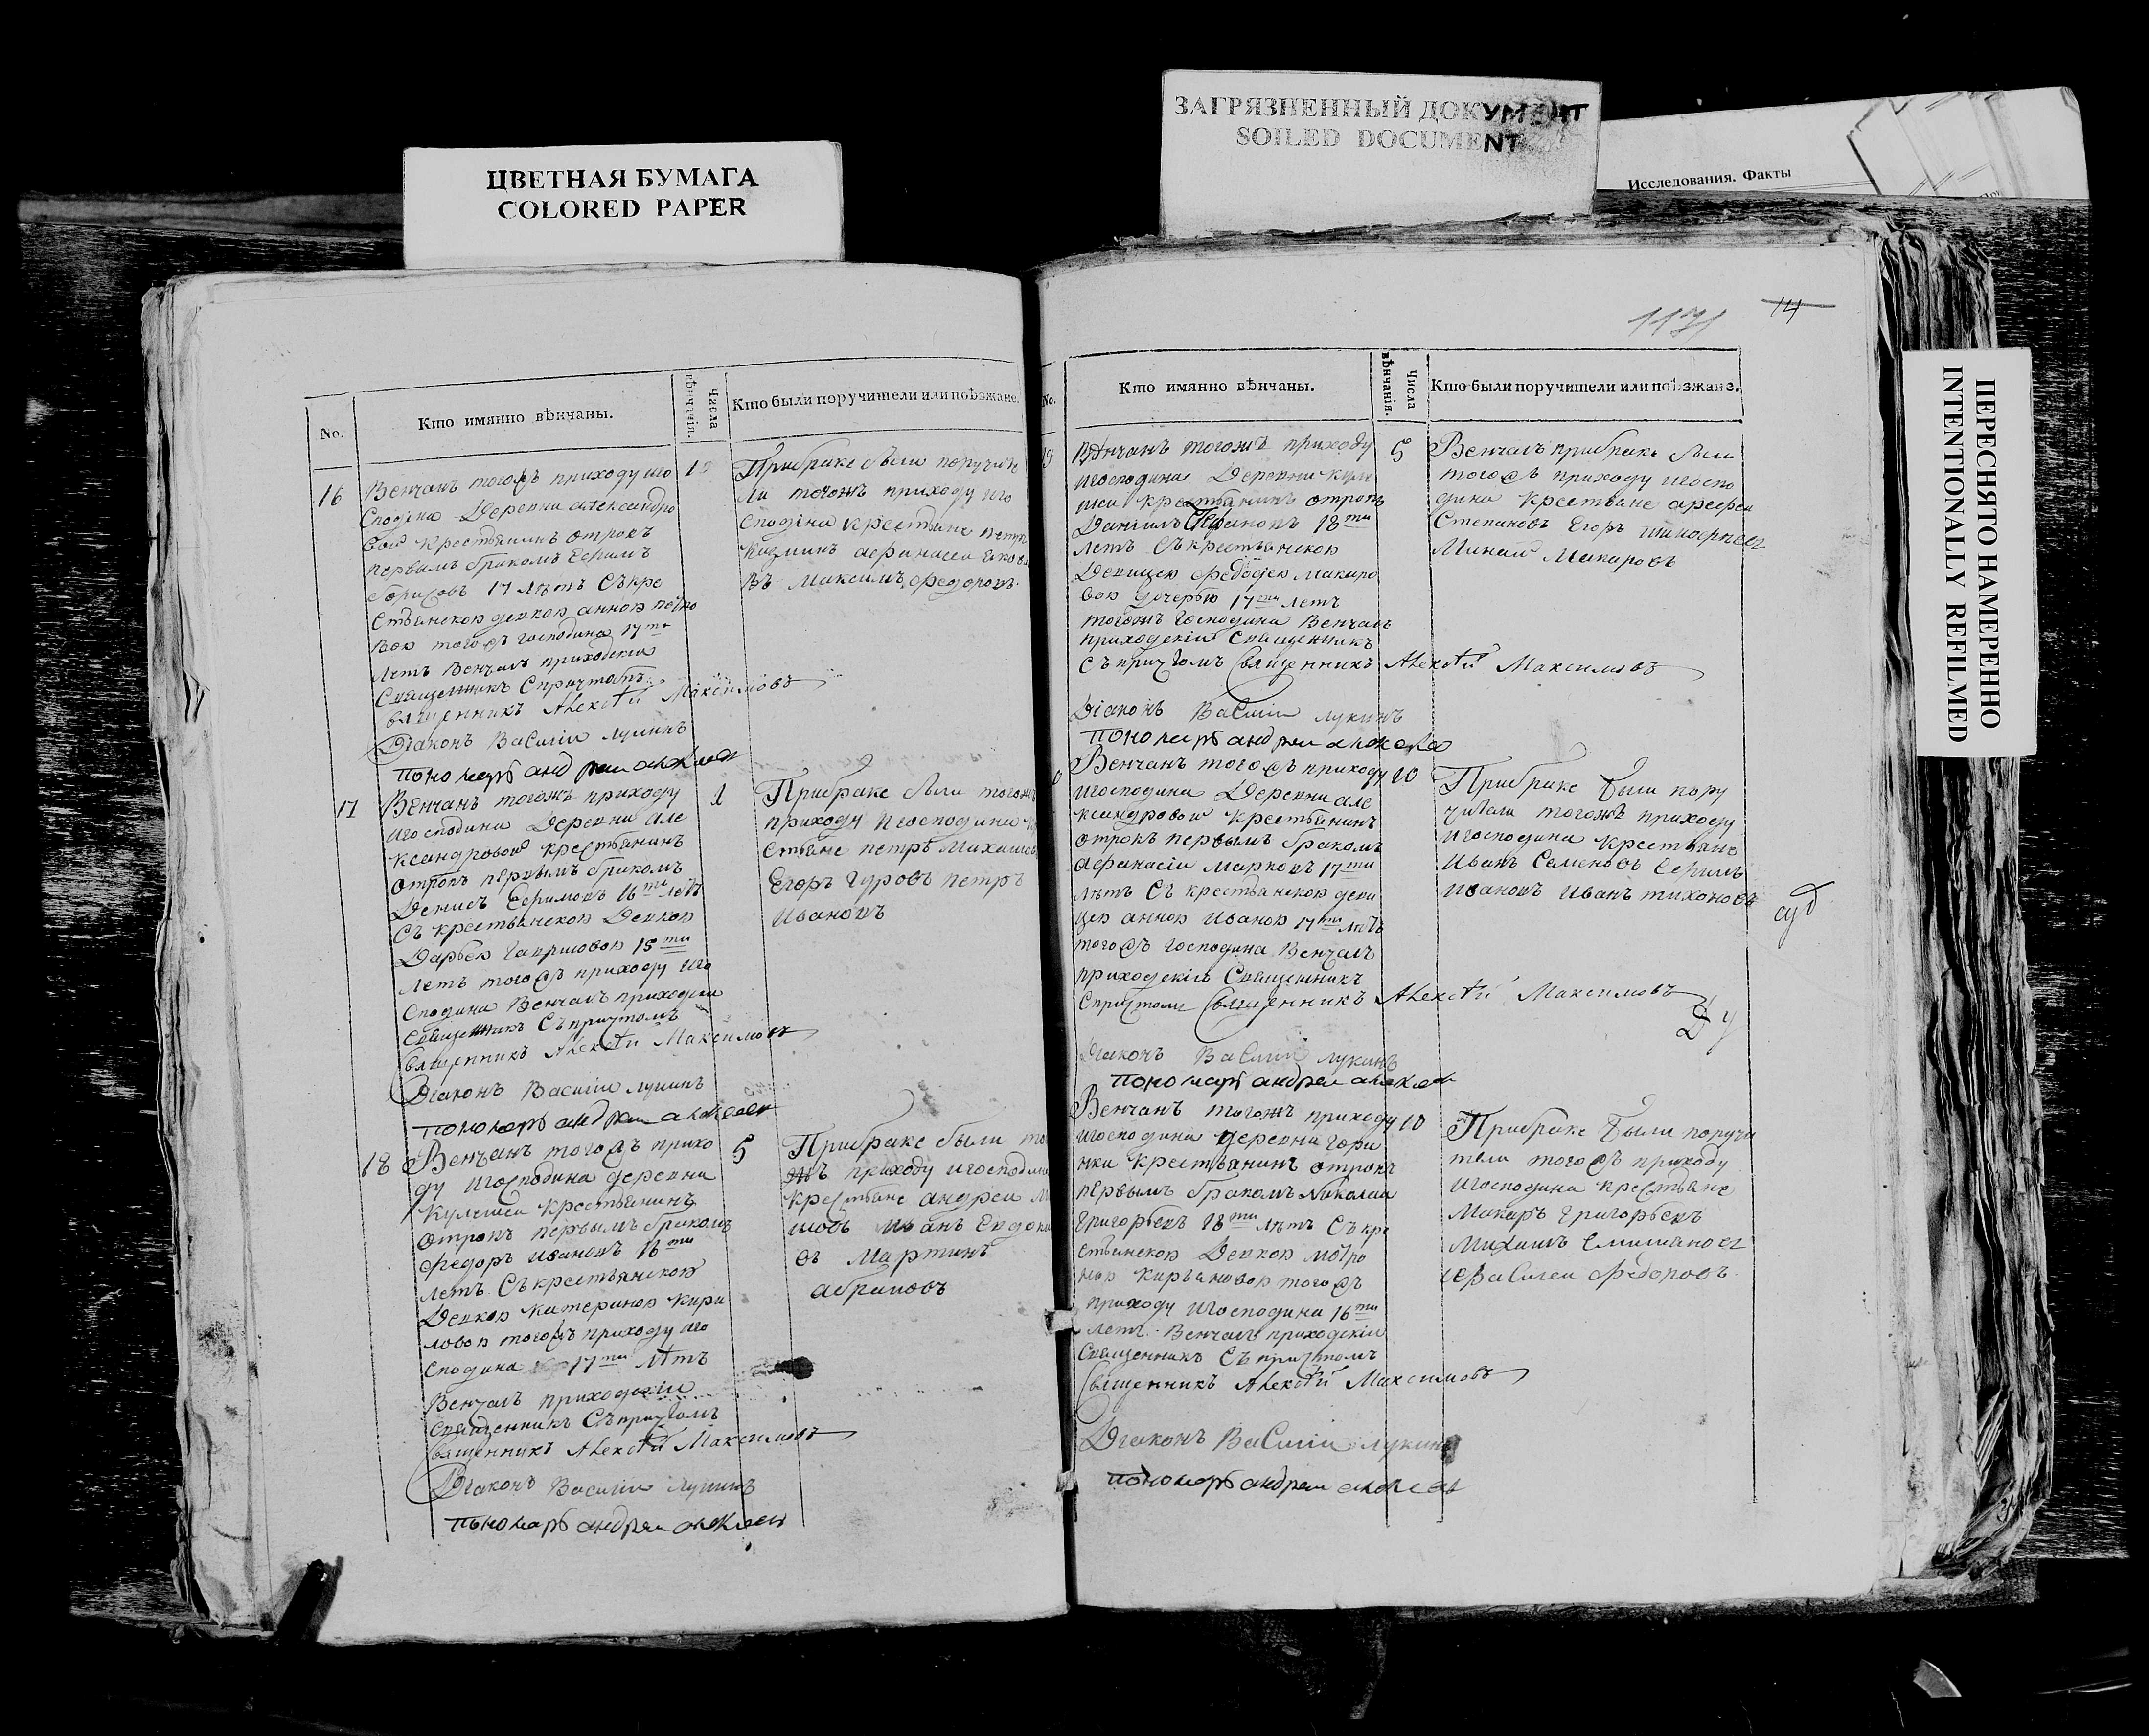 ЦВЕТНАЯ БУМАГА
COLORED PAPER
ЗАГРЯЗНЕННЫЙ ДОКУМЕНТ
SOILED DOCUMENT
Исследования. Факты
ПЕРЕСНЯТО НАМЕРЕННО
INTENTIONALLY REFILMED
No.
Кто имянно вѣнчаны.
Числа вѣнчанія.
Кто были поручители или поѣзжане.
16
Венчанъ тогожъ приходу иго
сподина Деревни александро
вой крестьянинъ отрокъ
первымъ бракомъ Ефимъ
борисовъ 17 лѣтъ Съ кре
стьянскои девкои анною
вои тогожъ господина 17ти
летъ Венчалъ приходскіи
Священникъ Спричтомъ
Священникъ Алексѣй Максимовъ
Діаконъ Василіи лукинъ
пономарь андреи алексеевъ
Прибраке были поручите
ли тогожъ приходу иго
сподина крестьяне петръ
козминъ афанасеи
въ Максимъ федоровъ
17
Венчанъ тогожъ приходу
игосподина Деревни але
ксандровой крестьянинъ
отрокъ первымъ бракомъ
Денисъ Ефимовъ 16ти летъ
Съ крестьянскои Девкои
Дарьеи гавриловои 15ти
летъ тогожъ приходу иго
сподина Венчалъ приходскіи
Священникъ Съ причтомъ
Священникъ Алексѣй Максимовъ
Діаконъ Василіи лукинъ
пономарь андреи алексеевъ
1
Прибраке были тогожъ
приходу игосподина кр
стьяне петръ Михаиловъ
Егоръ Гуровъ петръ
Ивановъ
18
Венчанъ тогожъ прихо
ду игосподина деревни
Кулешеи крестьянинъ
отрокъ первымъ бракомъ
федоръ ивановъ 18ти
летъ Съ крестьянскои
Девкои катеринои кири
ловои тогожъ приходу иго
сподина 17ти лѣтъ
Венчалъ приходскіи
священникъ Съ причтомъ
Священникъ Алексѣй Максимовъ
Діаконъ Василіи лукинъ
пономарь андреи алексеевъ
5
Прибраке были то
жъ приходу игосподина
крестьяне андреи
иванъ Евдоки
въ Мартинъ
абрамовъ
1171
14
No.
Кто имянно вѣнчаны.
Числа вѣнчанія.
Кто были поручители или поѣзжане.
Вѣнчанъ тогожъ приходу
игосподина Деревни Куле
шеи крестьянинъ отрокъ
Данилъ 18ти
летъ Съ крестьянскои
Девицею федосьеи макаро
вои дочерью 17ти летъ
тогожъ господина Венчалъ
приходскіи Священникъ
съ причтомъ Священникъ Алексѣй Максимовъ
Діаконъ Василіи лукинъ
пономарь андреи алексеевъ
5
Венчалъ прибраке были
тогожъ приходу игоспо
дина крестьяне
Степановъ Егоръ
Минаи Макаровъ
Венчанъ тогожъ приходу
игосподина Деревни але
ксандровои крестьянинъ
отрокъ первымъ бракомъ
афанасіи Марковъ 17ти
лѣтъ Съ крестьянскои деви
цеи аннои Ивановои 17ти летъ
тогожъ господина Венчалъ
приходскіи Священникъ
Спричтомъ Священникъ Алексѣй Максимовъ
Діаконъ Василіи лукинъ
пономарь андреи алексеевъ
10
Прибраке были пору
чители тогожъ приходу
игосподина крестьяне
Иванъ Семеновъ Ефимъ
ивановъ Иванъ тихоновъ
Венчанъ тогожъ приходу
игосподина деревни Гори
нки крестьянинъ отрокъ
первымъ бракомъ Николаи
Григорьевъ 18ти лѣтъ Съ кре
стьянскои Девкои мотро
нои кирьяновои тогожъ
приходу игосподина 16ти
летъ Венчалъ приходскіи
Священникъ Съ причтомъ
Священникъ Алексѣй Максимовъ
Діаконъ Василіи лукинъ
пономарь андреи алексеевъ
10
Прибраке были поручи
тели тогожъ приходу
игосподина крестьяне
Макаръ Григорьевъ
Михаилъ
иВасилеи федоровъ